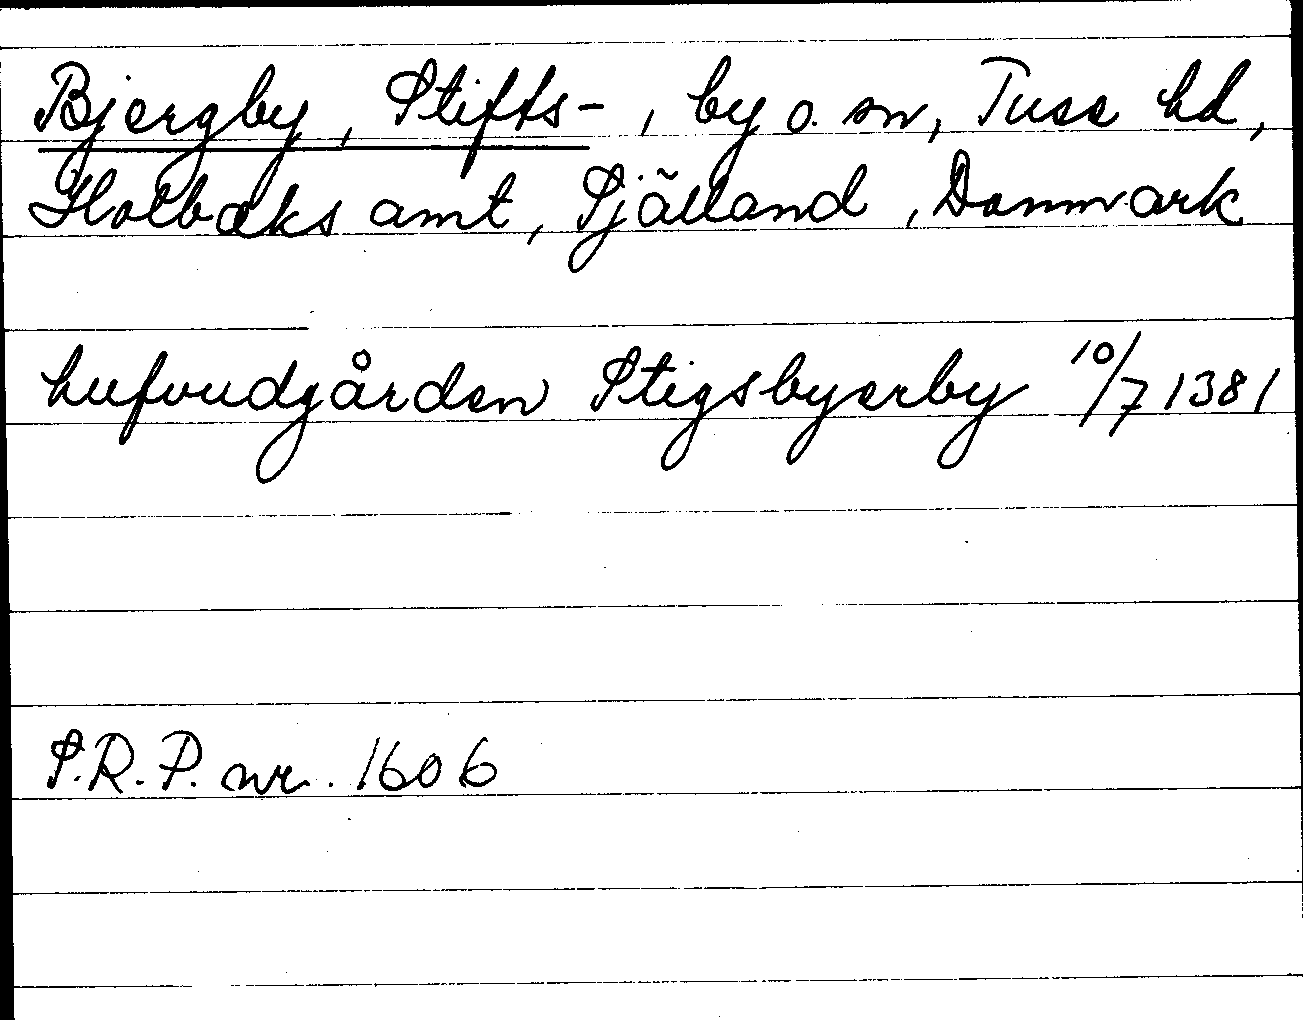 Bjergby, Stifts-, by o. sn, Tuse hd,
Holbæks amt, Själland, Danmark
hufvudgården Stigsbyerby 10/7 1381
S.R.P. nr. 1606